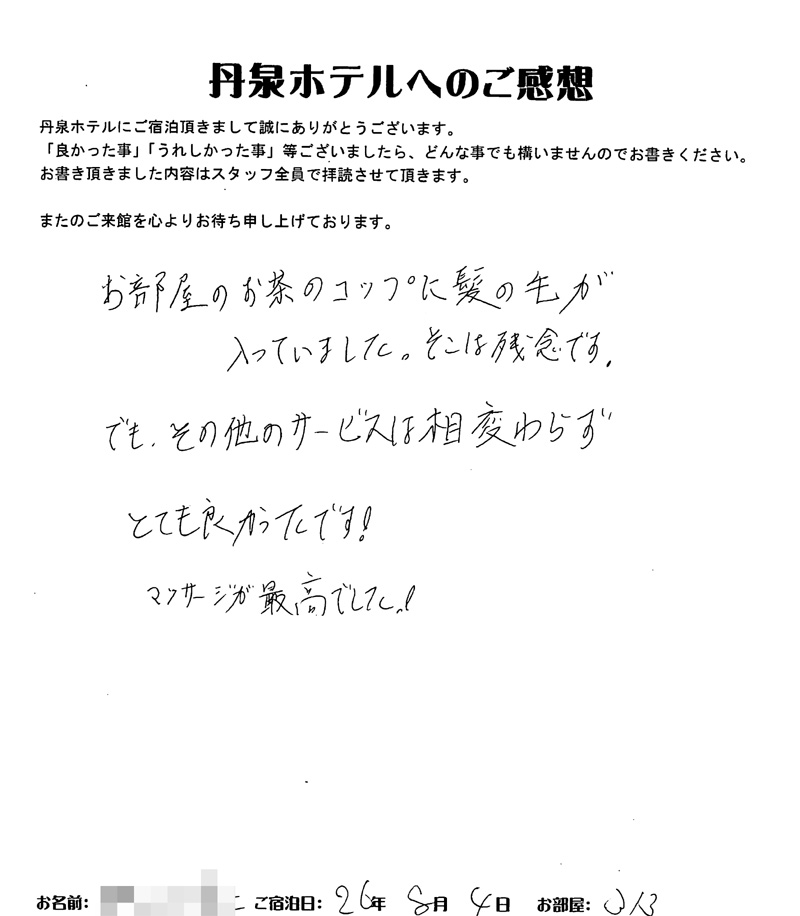 丹泉ホテルへのご感想
丹泉ホテルにご宿泊頂きまして誠にありがとうございます。
「良かった事」「うれしかった事」等ございましたら、どんな事でも構いませんのでお書きください。
お書き頂きました内容はスタッフ全員で拝読させて頂きます。
またのご来館を心よりお待ち申し上げております。
お部屋のお茶のコップに髪の毛が
入っていました。そこは残念です。
でも、その他のサービスは相変わらず
とても良かったです!
マッサージが最高でした!
お名前: ご宿泊日: 26年 8月 4日 お部屋: